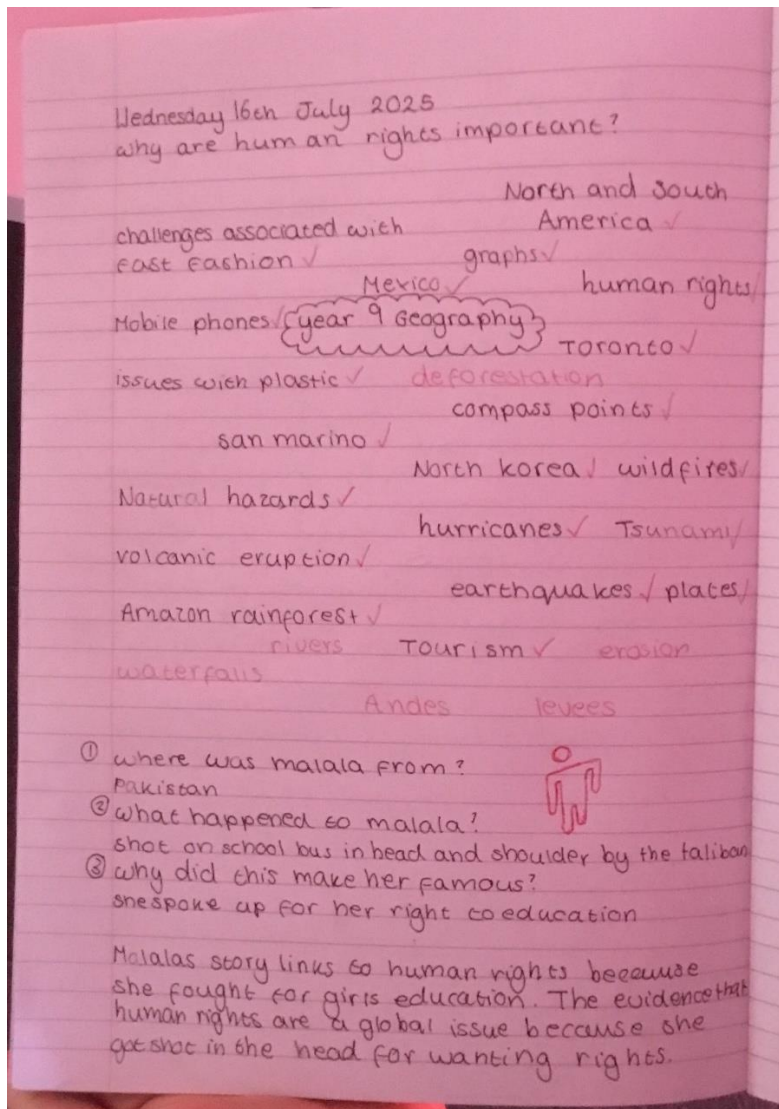 Wednesday 16th July 2025
why are human rights important?
North and South
challenges associated with America ✓
fast fashion ✓ graphs ✓
Mexico ✓ human rights ✓
Mobile phones ✓ year 9 Geography
Toronto ✓
issues with plastic ✓ deforestation
compass points ✓
san marino ✓
North korea ✓ wildfires ✓
Natural hazards ✓
hurricanes ✓ Tsunami ✓
volcanic eruption ✓
earthquakes ✓ plates ✓
Amazon rainforest ✓
rivers Tourism ✓ erosion
waterfalls
Andes levees
① where was malala from?
Pakistan
② what happened to malala?
shot on school bus in head and shoulder by the taliban
③ why did this make her famous?
she spoke up for her right to education
Malalas story links to human rights beecause
she fought for girls education. The evidence that
human rights are a global issue because she
got shot in the head for wanting rights.